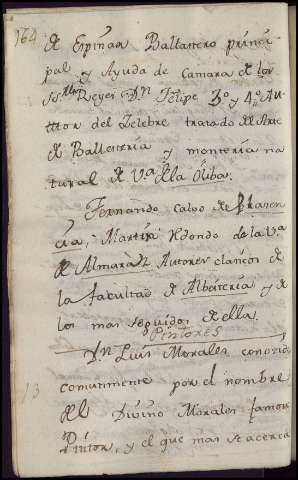 164
de Espinar Ballestero princi
pal y Ayuda de Camara de los
SS.res Reyes Dn Felipe 3.º y 4.º Au
tor del Zelebre tratado de Arte
de Ballesteria y monteria na
tural de Va de la Oliba.
Fernando Calvo de Plasen
cia, Martin Rdondo de la Va
de Almaraz Autores clasicos de
la facultad de Albeiteria y de
los mas seguidos de ella.
Pintores
13
Dn Luis Morales, conocido
comunmente por el nombre
del Divino Morales famoso
Pintor, y el que mas se acerca